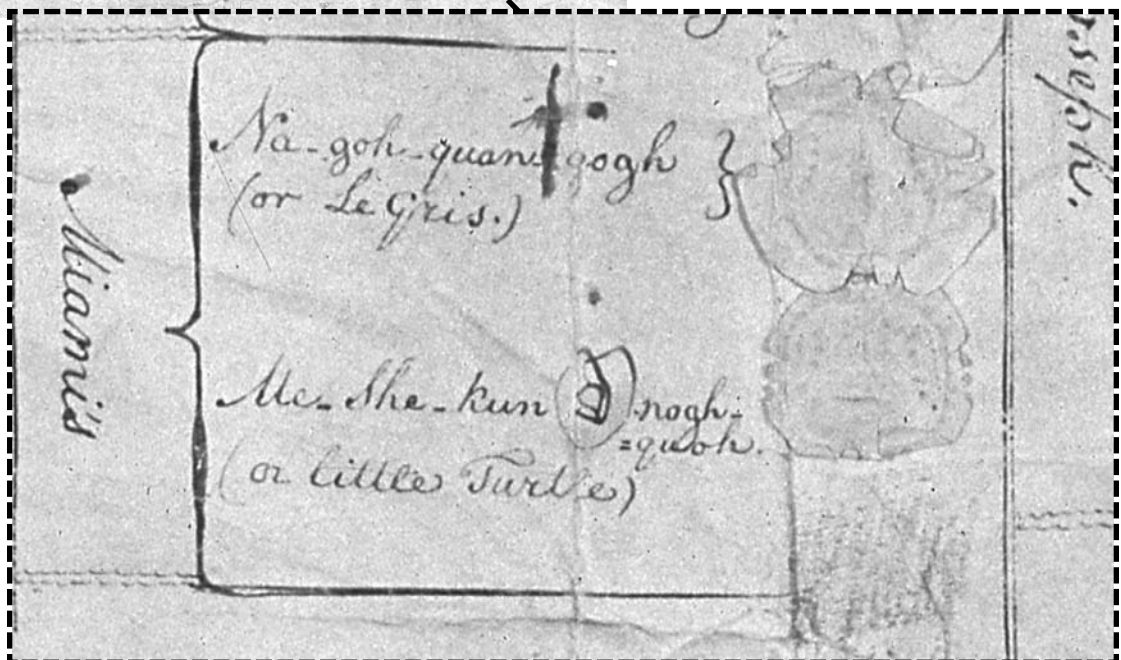 Miamis
Na-goh-quan gogh
(or Le Gris.)
Me-She-kun nogh-
=quoh.
(or little Turtle)
seph.